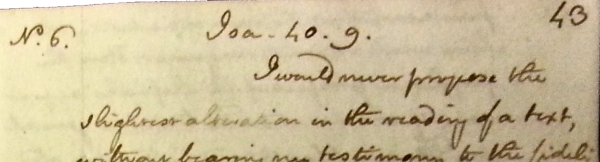 No. 6. Isa. 40. 9. 43
I would never propose the
slightest alteration in the reading of a text,
without bearing my testimony to the fideli